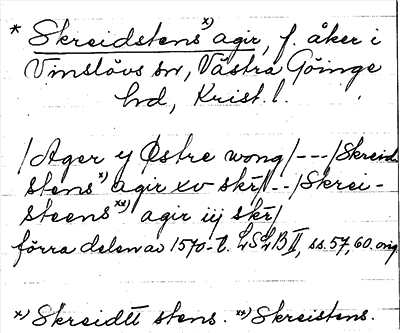 * Skreidstens x) agir, f. åker i
Vinslövs sn, Västra Göinge
hd, Krist. l.
/Ager y Østre wong/---/Skreid
stens x) agir xv skr̃/--/Skrei-
steens xx) agir iij skr̃/
förra delen av 1570-t. LSLB II, ss. 57, 60. orig.
x) Skreidtt stens. xx) Skreistens.